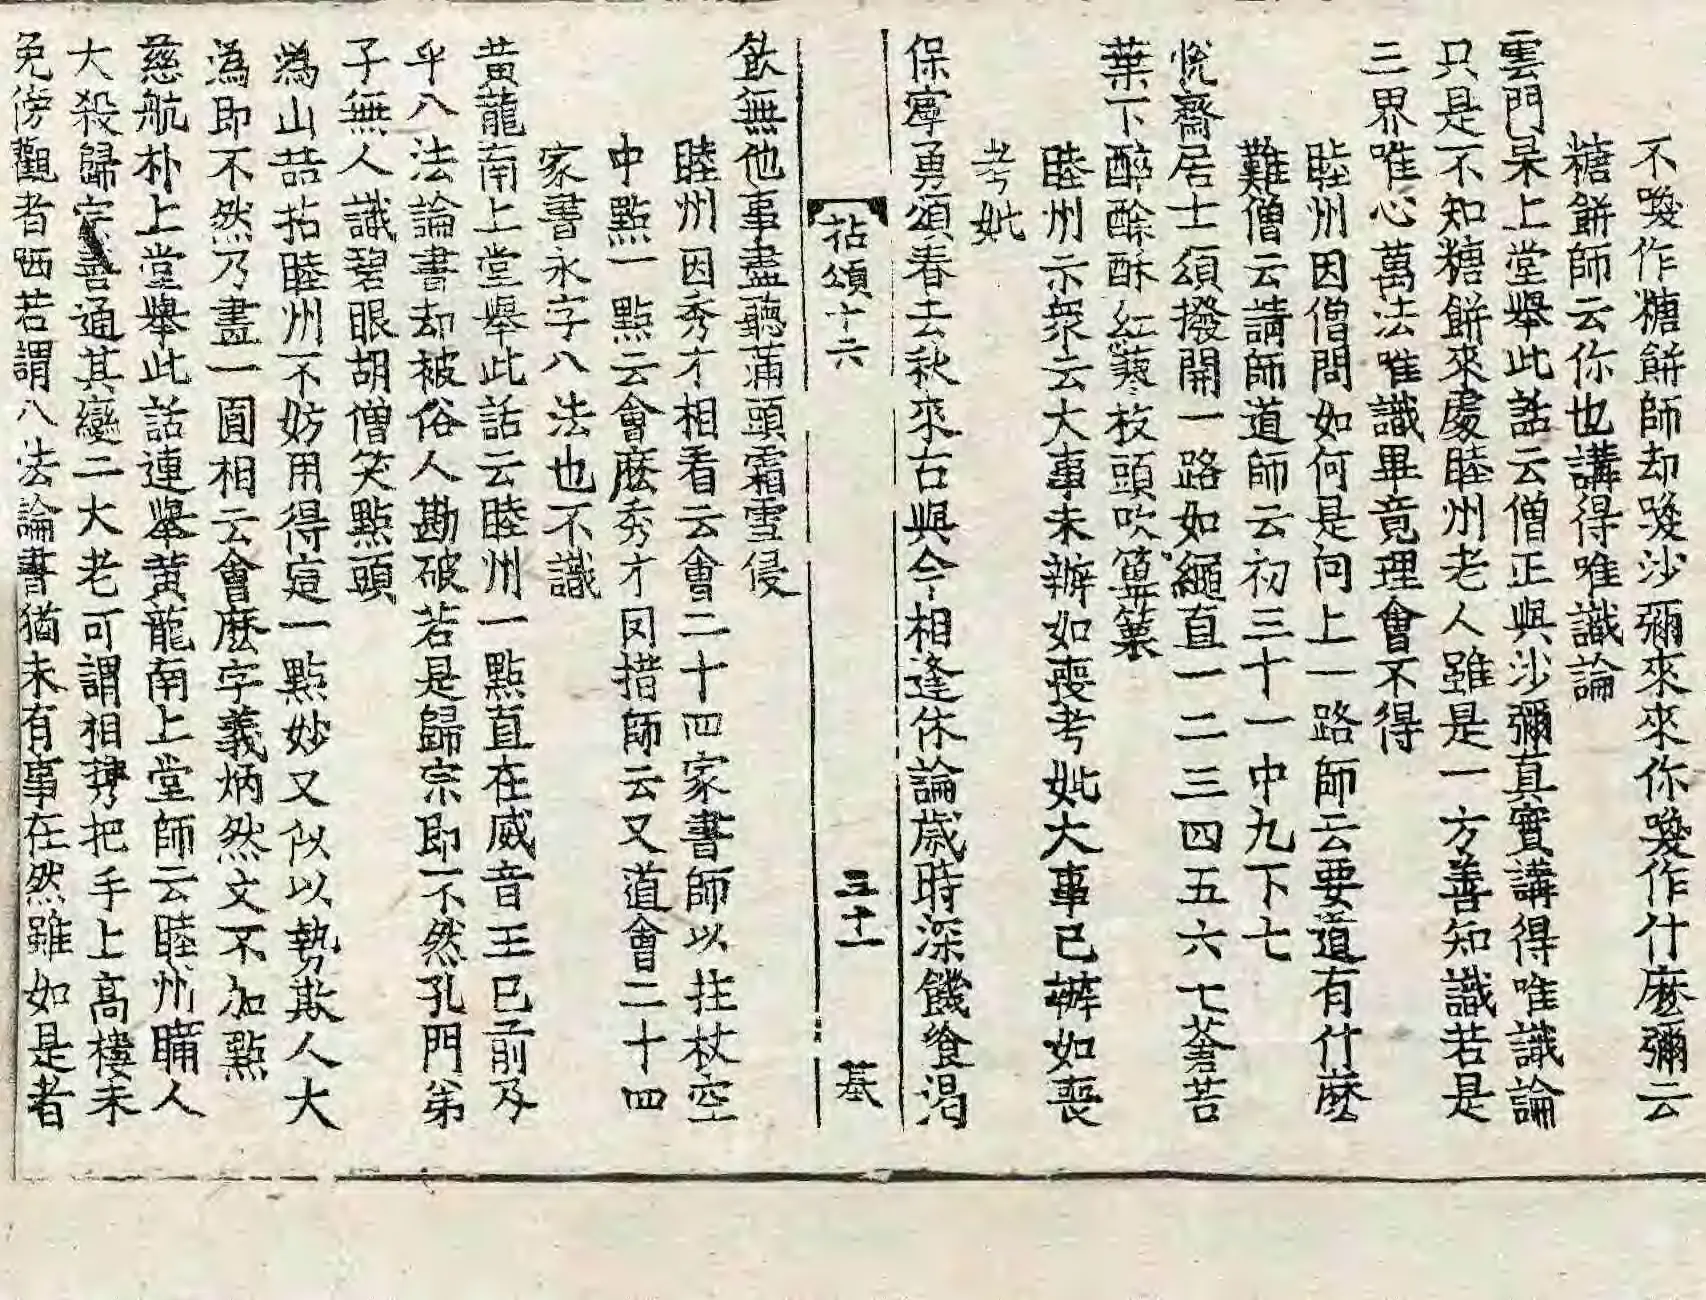 不喚作糖餅師却喚沙彌來來你喚作什麽彌云
糖餅師云你也講得唯識論
雲門杲上堂擧此話云僧正與沙彌真實講得唯識論
只是不知糖餅來處睦州老人雖是一方善知識若是
三界唯心萬法唯識畢竟理會不得
睦州因僧問如何是向上一路師云要道有什麽
難僧云請師道師云初三十一中九下七
悅齋居士頌撥開一路如繩直一二三四五六七蒼苔
葉下醉酴酥紅蓼枝頭吹篳篥
睦州示衆云大事未辦如喪考妣大事已辦如喪
考妣
保寧勇頌春去秋來古與今相逢休論歲時深饑飡渴
拈頌十六
三十一
綦
飲無他事盡聽滿頭霜雪侵
睦州因秀才相看云會二十四家書師以拄杖空
中點一點云會麽秀才罔措師云又道會二十四
家書永字八法也不識
黃龍南上堂擧此話云睦州一點直在威音王已前及
乎八法論書却被俗人勘破若是歸宗即不然孔門弟
子無人識碧眼胡僧笑點頭
潙山喆拈睦州不妨用得這一點妙又似以勢欺人大
潙即不然乃畫一圓相云會麽字義炳然文不加點
慈航朴上堂擧此話連擧黃龍南上堂師云睦州瞞人
大殺歸宗善通其變二大老可謂相 把手上高樓未
免傍觀者哂若謂八法論書猶未有事在然雖如是者